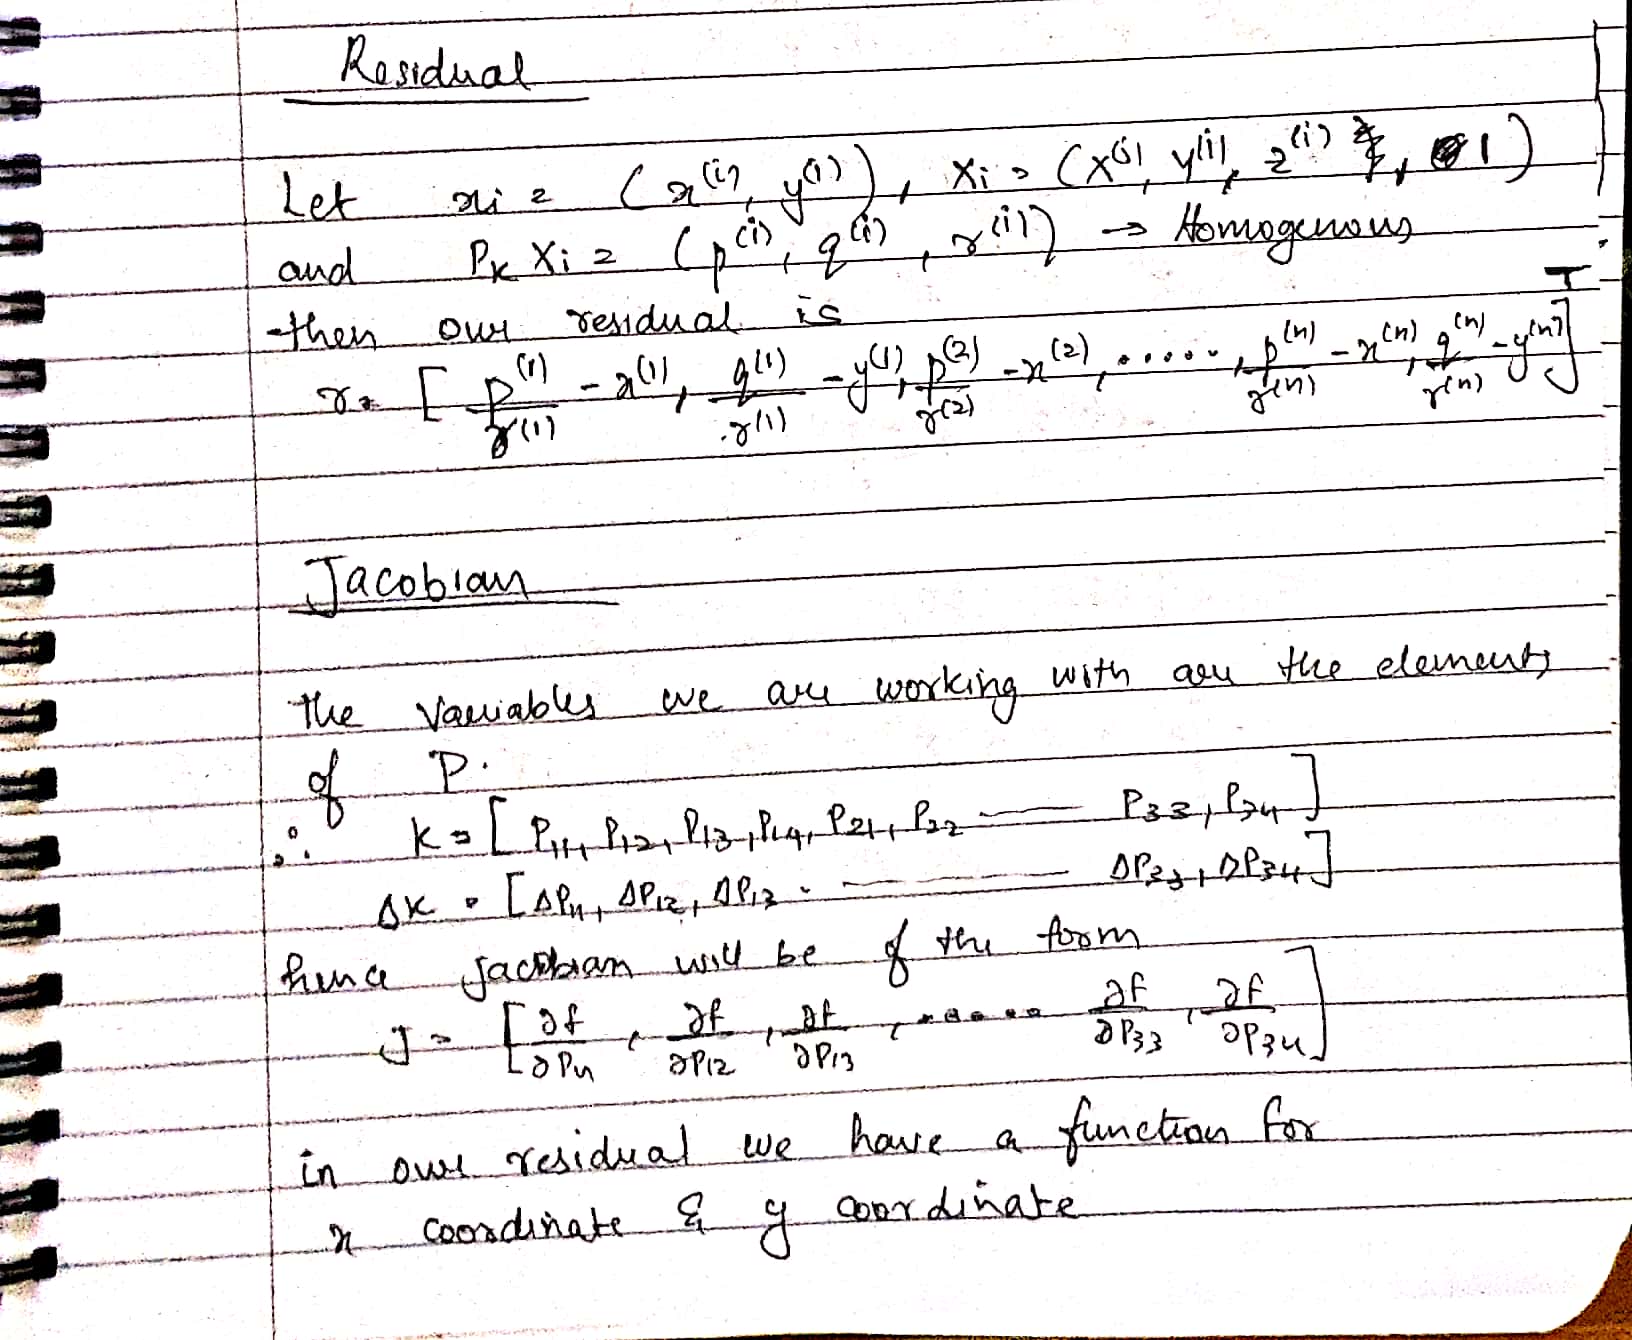 Residual
Let xi = (x^(i), y^(i)), Xi = (X^(i), y^(i), z^(i), 1)
and P_K Xi = (p^(i), q^(i), r^(i)) → Homogenous
then our residual is
r = [ p^(1)/r^(1) - x^(1), q^(1)/r^(1) - y^(1), p^(2)/r^(2) - x^(2), ....., p^(n)/r^(n) - x^(n), q^(n)/r^(n) - y^(n) ]^T
Jacobian
the variables we are working with are the elements
of P.
∴ K = [ P11, P12, P13, P14, P21, P22 — P33, P34 ]
ΔK = [ΔP11, ΔP12, ΔP13 . — ΔP33, ΔP34]
hence jacobian will be of the form
J = [ ∂f/∂P11, ∂f/∂P12, ∂f/∂P13, ..... ∂f/∂P33, ∂f/∂P34 ]
in our residual we have a function for
x coordinate & y coordinate